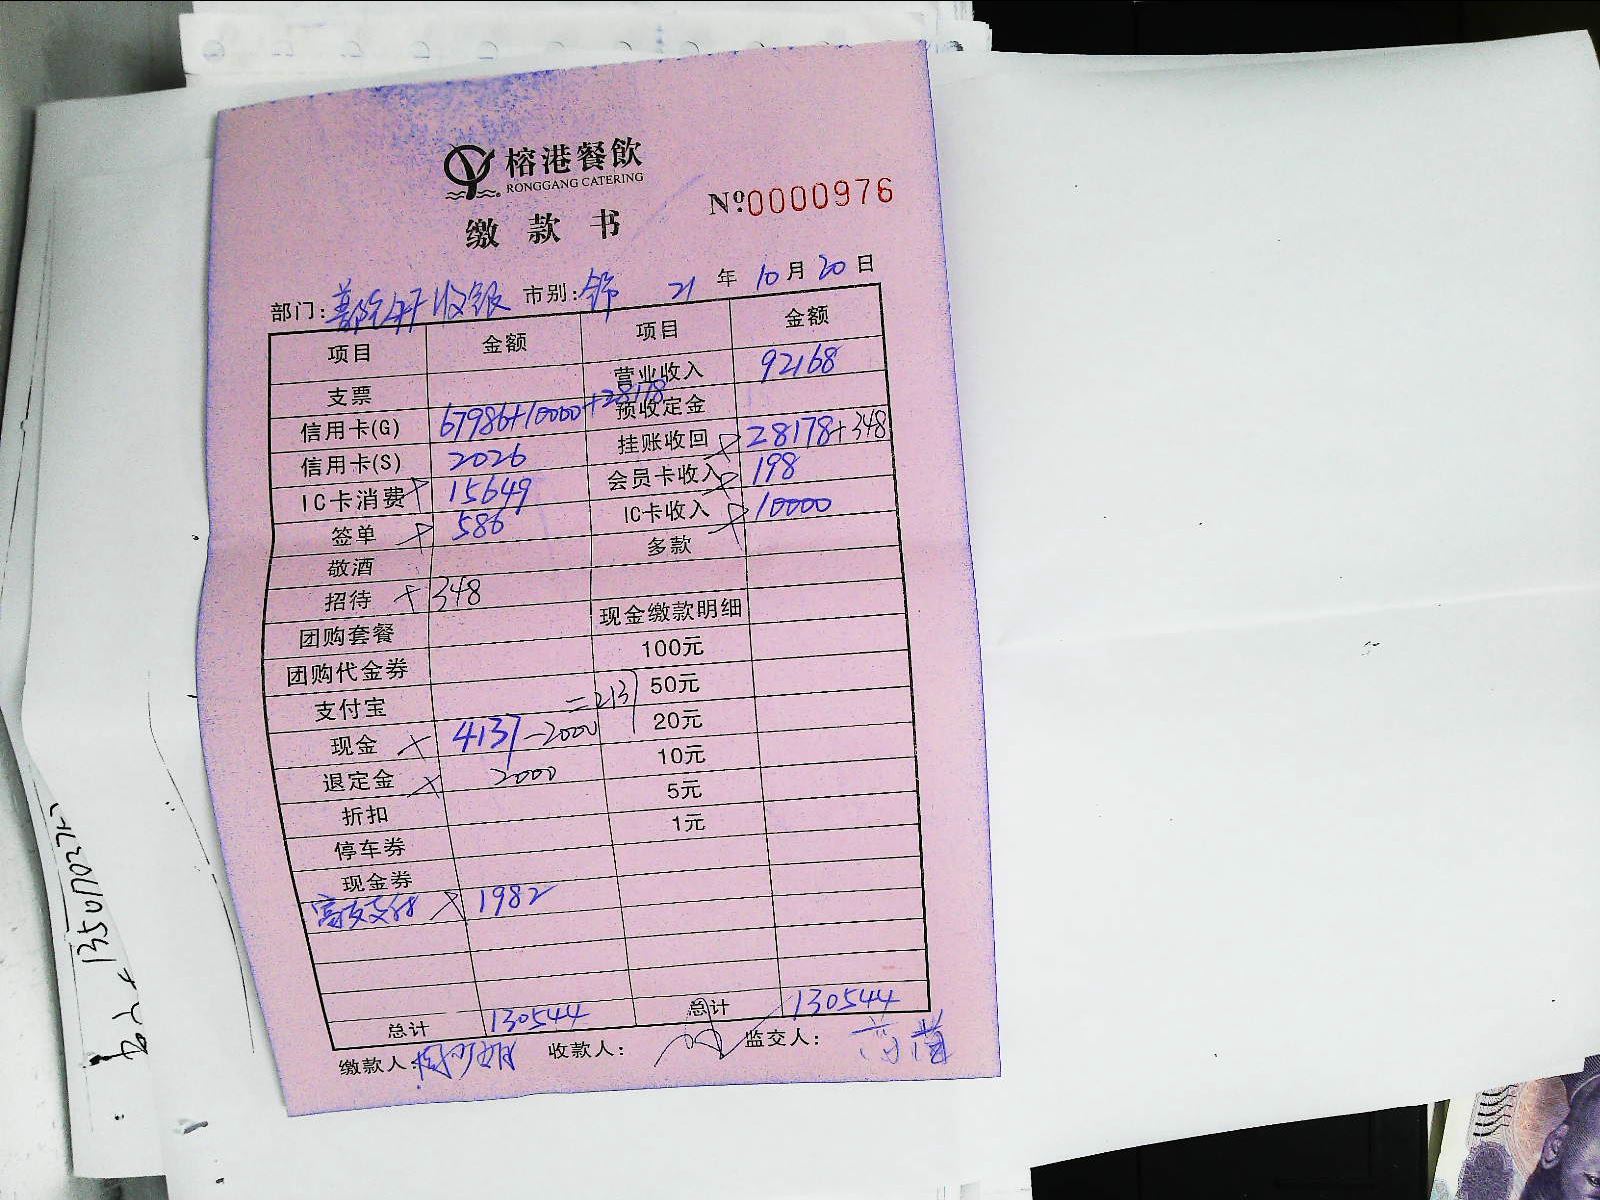 榕港餐飲
RONGGANG CATERING
缴款书
Nº0000976
部门: 收银 市别: 21 年 10 月 20 日
项目 金额 项目 金额
支票 营业收入 92168
信用卡(G) 67986+10000+28178 预收定金
信用卡(S) 2026 挂账收回 28178+348
IC卡消费 15649 会员卡收入 198
签单 586 IC卡收入 10000
敬酒 多款
招待 348
团购套餐 现金缴款明细
团购代金券 100元
支付宝 50元
现金 4137-2000=2137 20元
退定金 2000 10元
折扣 5元
停车券 1元
现金券
支付 1982
总计 130544 总计 130544
缴款人: 收款人: 监交人: